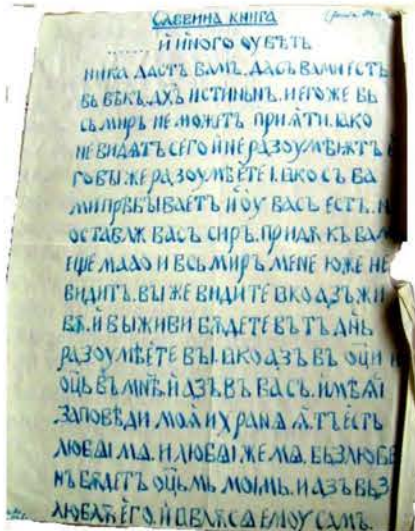 САВВИНА КНИГА
........ И ИНОГО ОУВѢТЪ
НИКА ДАСТЪ ВАМЪ. ДАСЬ ВАМИ ЕСТЪ
ВЬ ВѢКЪ. ДХЪ ИСТИНЬНЪ. ИЕГОЖЕ ВЬ
СЬ МИРЬ НЕ МОЖЕТЪ ПРИѨТИ. ꙖКО
НЕ ВИДѦТЪ СЕГО И НЕ РАЗОУМѢѬТЪ
ГО ВЫ ЖЕ РАЗОУМѢЕТЕ І. ꙖКО СЪ ВА
МИ ПРѢБЫВАЕТЪ И ОУ ВАСЪ ЕСТЪ. Н
ОСТАВЛѬ ВАСЪ СИРЪ. ПРИДѪ КЪ ВАМ
ЕЩЕ МАЛО И ВСЬ МИРЪ МЕНЕ ЮЖЕ НЕ
ВИДИТЪ. ВЫ ЖЕ ВИДИТЕ ꙖКО АЗЪ ЖИ
ВѪ. И ВЫ ЖИВИ БѪДЕТЕ ВЪ ТЪ ДНЬ
РАЗОУМѢЕТЕ ВЫ. ꙖКО АЗЪ ВЪ ОЦИ И
ОЦЬ ВЪ МНѢ. И АЗЪ ВЪ ВАСЪ. ИМѢѨІ
ЗАПОВѢДИ МОѨ И ХРАНѦ Ѩ. ТЪ ЕСТЬ
ЛЮБѦІ МѦ. И ЛЮБѦІ ЖЕ МѦ. ВЬЗЛЮБЕ
НЪ БѪДЕТЪ ОЦЬМЬ МОІМЬ. И АЗЪ ВЬЗ
ЛЮБЛѬ ЕГО. И ꙖВЛѬСѦ ЕМОУ САМЪ